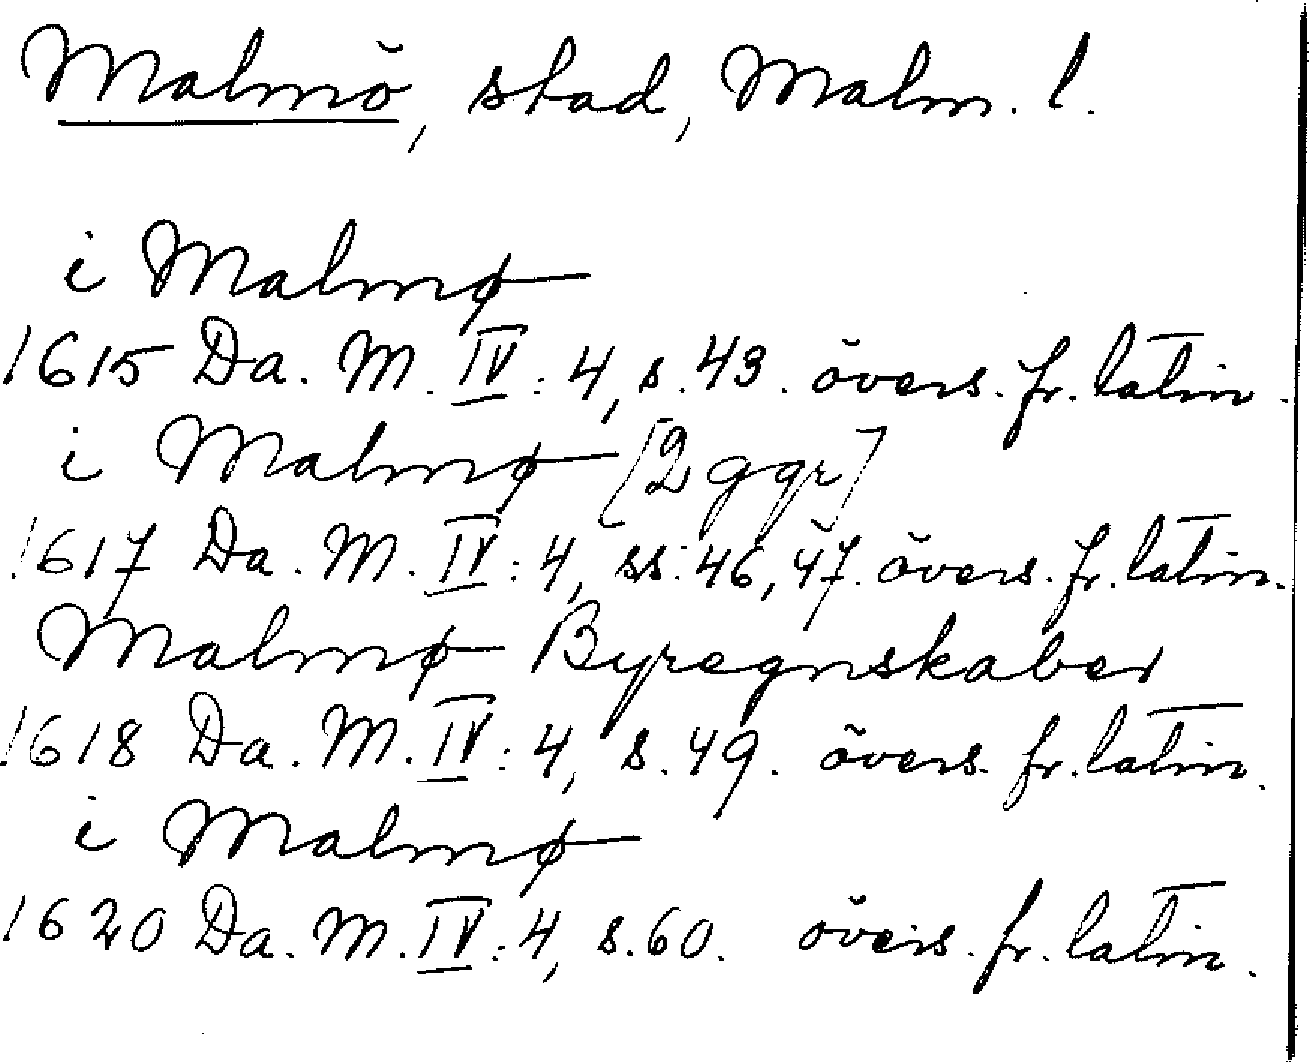 Malmö, stad, Malm. l.
i Malmø
1615 Da. M. IV: 4, s. 43. övers. fr. latin.
i Malmø [2 ggr]
1617 Da. M. IV: 4, ss. 46, 47. övers. fr. latin.
Malmø Byregnskaber
1618 Da. M. IV: 4, s. 49. övers. fr. latin.
i Malmø
1620 Da. M. IV: 4, s. 60. övers. fr. latin.